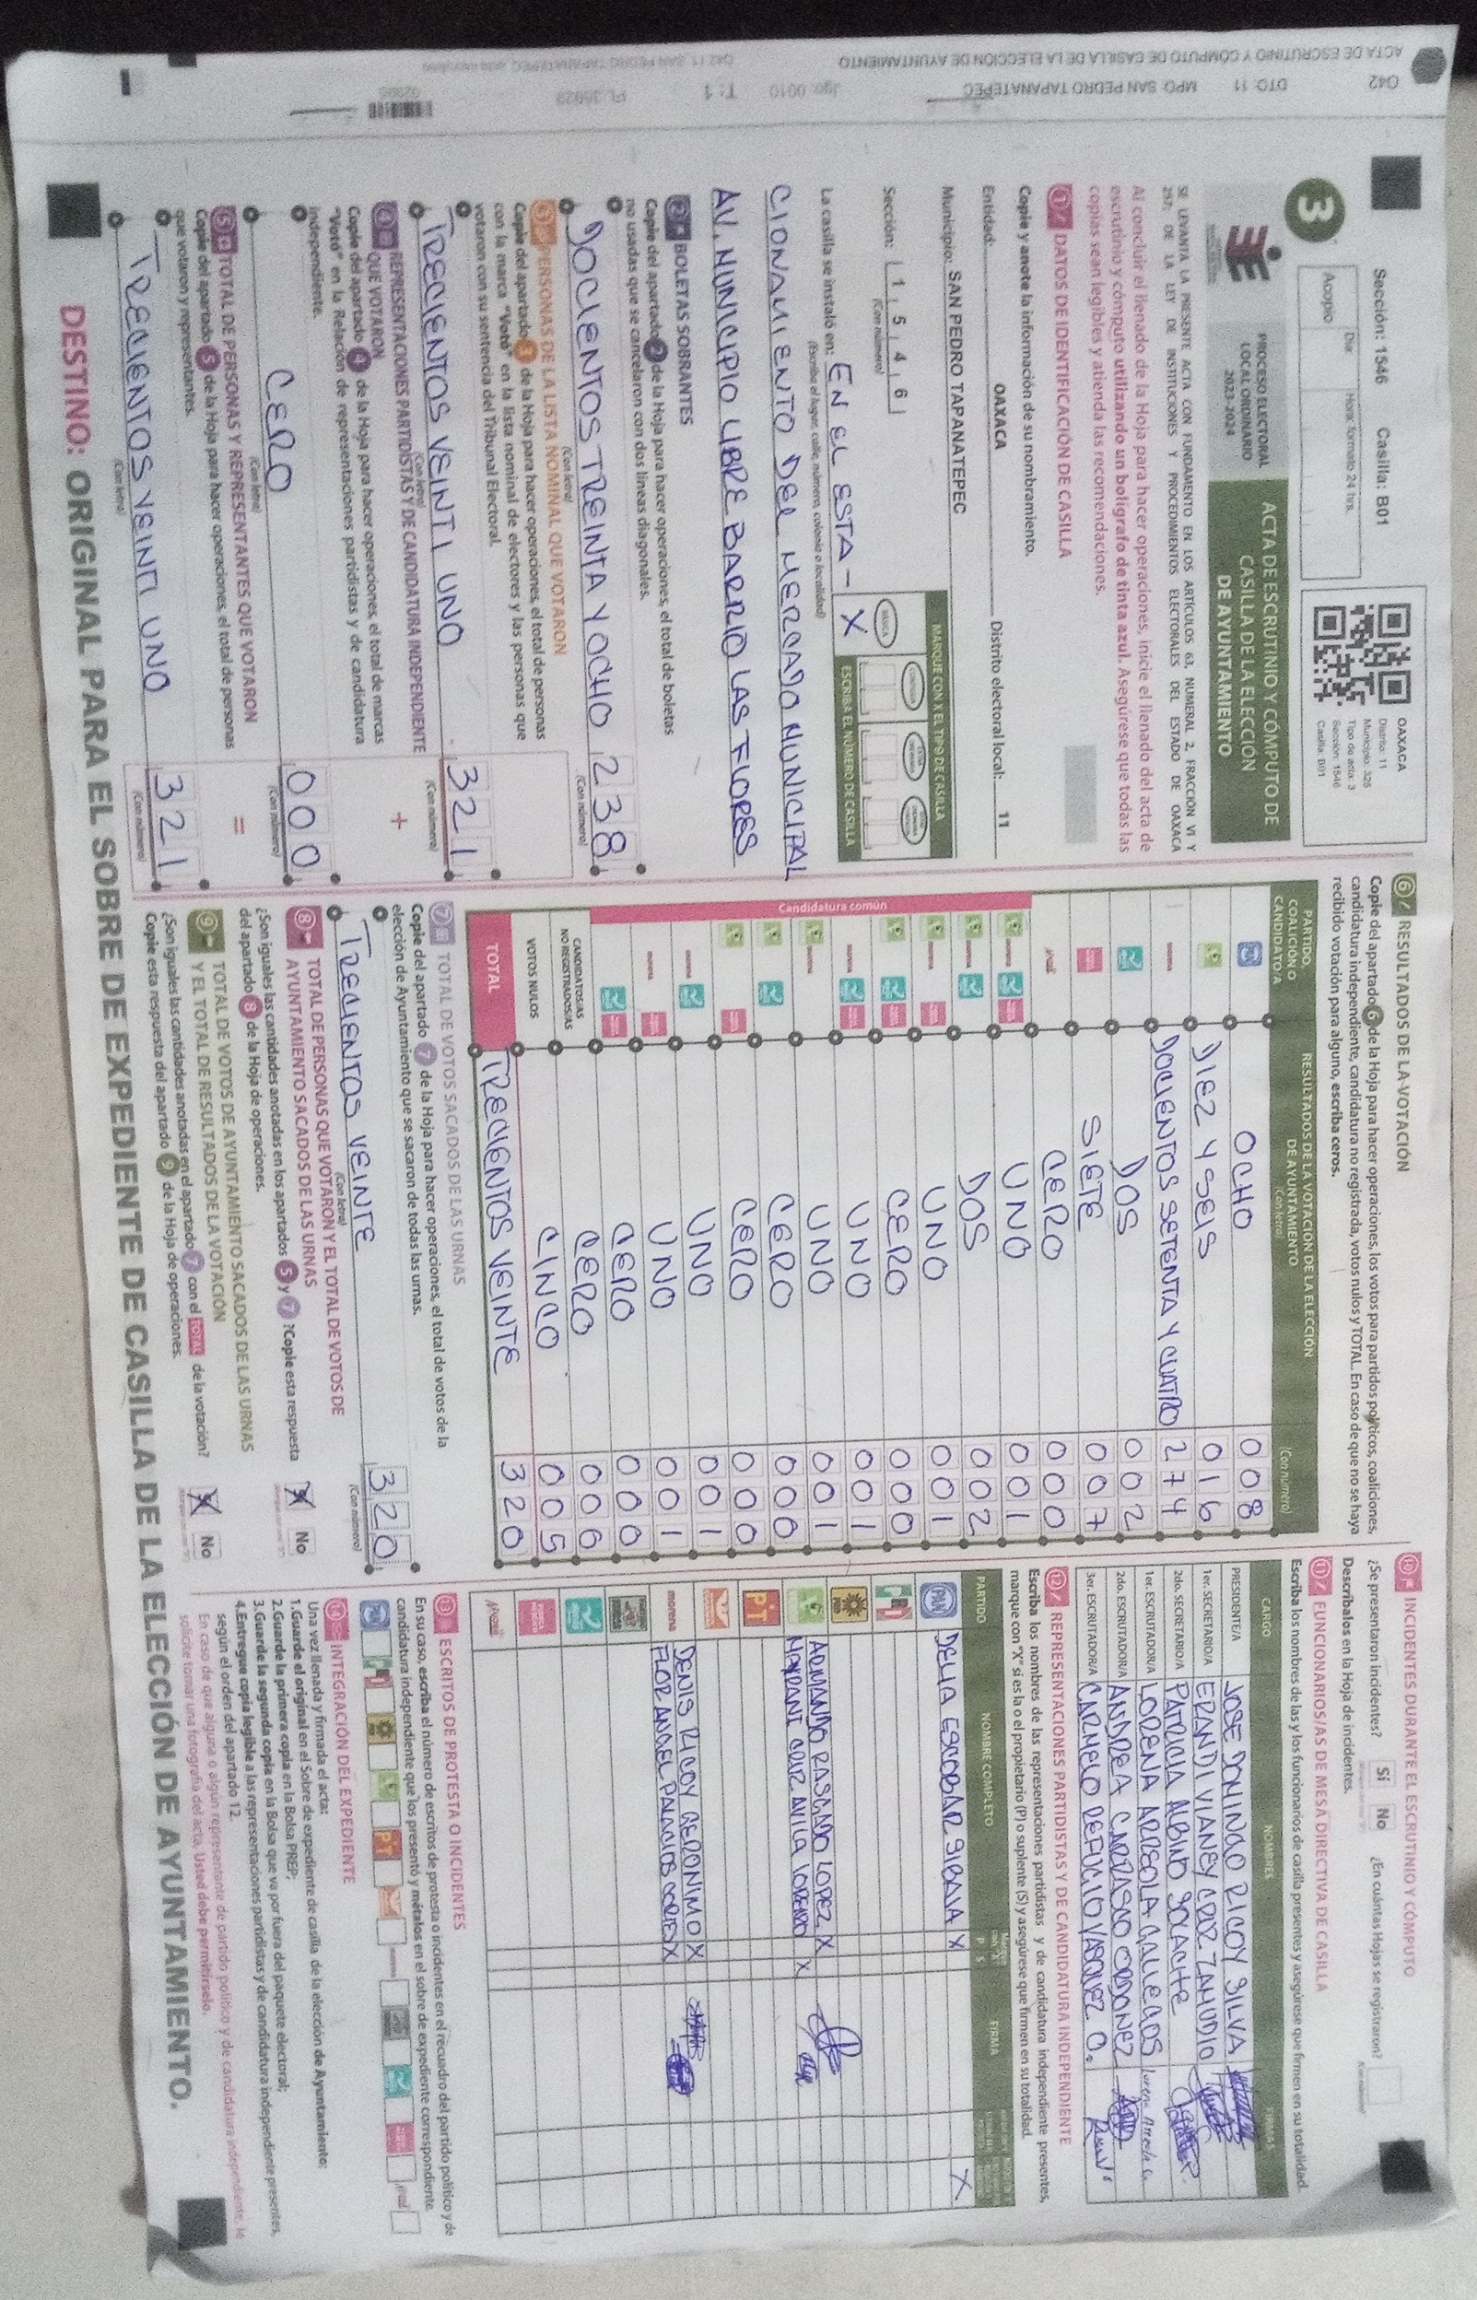 042 DTO. 11 MPO. SAN PEDRO TAPANATEPEC Jgo. 0010 T: 1
ACTA DE ESCRUTINIO Y CÓMPUTO DE CASILLA DE LA ELECCIÓN DE AYUNTAMIENTO
Sección: 1546 Casilla: B01
3
Acopio
Día:
Hora: formato 24 hrs.
OAXACA
Distrito: 11
Municipio: 326
Tipo de acta: 3
Sección: 1546
Casilla: B01
PROCESO ELECTORAL
LOCAL ORDINARIO
2023-2024
ACTA DE ESCRUTINIO Y CÓMPUTO DE
CASILLA DE LA ELECCIÓN
DE AYUNTAMIENTO
SE LEVANTA LA PRESENTE ACTA CON FUNDAMENTO EN LOS ARTÍCULOS 63, NUMERAL 2, FRACCIÓN VI Y
257; DE LA LEY DE INSTITUCIONES Y PROCEDIMIENTOS ELECTORALES DEL ESTADO DE OAXACA
Al concluir el llenado de la Hoja para hacer operaciones, inicie el llenado del acta de
escrutinio y cómputo utilizando un bolígrafo de tinta azul. Asegúrese que todas las
copias sean legibles y atienda las recomendaciones.
1 DATOS DE IDENTIFICACIÓN DE CASILLA
Copie y anote la información de su nombramiento.
Entidad: OAXACA Distrito electoral local: 11
Municipio: SAN PEDRO TAPANATEPEC
Sección: 1 5 4 6
(Con número)
MARQUE CON X EL TIPO DE CASILLA
BÁSICA
X
ESCRIBA EL NÚMERO DE CASILLA
La casilla se instaló en: EN EL ESTA-
(Escriba el lugar, calle, número, colonia o localidad)
CIONAMIENTO DEL MERCADO MUNICIPAL
AV. MUNICIPIO LIBRE BARRIO LAS FLORES
2 BOLETAS SOBRANTES
Copie del apartado 2 de la Hoja para hacer operaciones, el total de boletas
no usadas que se cancelaron con dos líneas diagonales.
DOCIENTOS TREINTA Y OCHO 238
(Con letra) (Con número)
3 PERSONAS DE LA LISTA NOMINAL QUE VOTARON
Copie del apartado 3 de la Hoja para hacer operaciones, el total de personas
con la marca "Votó" en la lista nominal de electores y las personas que
votaron con su sentencia del Tribunal Electoral.
TRECIENTOS VEINTI UNO 321
(Con letra) (Con número)
4 REPRESENTACIONES PARTIDISTAS Y DE CANDIDATURA INDEPENDIENTE
QUE VOTARON
+
Copie del apartado 4 de la Hoja para hacer operaciones, el total de marcas
"Votó" en la Relación de representaciones partidistas y de candidatura
independiente.
CERO 000
(Con letra) (Con número)
5 TOTAL DE PERSONAS Y REPRESENTANTES QUE VOTARON
=
Copie del apartado 5 de la Hoja para hacer operaciones, el total de personas
que votaron y representantes.
TRECIENTOS VEINTI UNO 321
(Con letra) (Con número)
6 RESULTADOS DE LA VOTACIÓN
Copie del apartado 6 de la Hoja para hacer operaciones, los votos para partidos políticos, coaliciones,
candidatura independiente, candidatura no registrada, votos nulos y TOTAL. En caso de que no se haya
recibido votación para alguno, escriba ceros.
PARTIDO, COALICIÓN O CANDIDATO/A
RESULTADOS DE LA VOTACIÓN DE LA ELECCIÓN DE AYUNTAMIENTO
(Con letra) (Con número)
OCHO 008
DIEZ Y SEIS 016
DOCIENTOS SETENTA Y CUATRO 274
DOS 002
SIETE 007
CERO 000
Candidatura común
UNO 001
DOS 002
UNO 001
CERO 000
UNO 001
UNO 001
CERO 000
CERO 000
UNO 001
UNO 001
CERO 000
CANDIDATOS/AS NO REGISTRADOS/AS CERO 000
VOTOS NULOS CINCO 005
TOTAL TRECIENTOS VEINTE 320
7 TOTAL DE VOTOS SACADOS DE LAS URNAS
Copie del apartado 7 de la Hoja para hacer operaciones, el total de votos de la
elección de Ayuntamiento que se sacaron de todas las urnas.
TRECIENTOS VEINTE 320
(Con letra) (Con número)
8 TOTAL DE PERSONAS QUE VOTARON Y EL TOTAL DE VOTOS DE
AYUNTAMIENTO SACADOS DE LAS URNAS
¿Son iguales las cantidades anotadas en los apartados 5 y 7? Copie esta respuesta
del apartado 8 de la Hoja de operaciones.
X No
9 TOTAL DE VOTOS DE AYUNTAMIENTO SACADOS DE LAS URNAS
Y EL TOTAL DE RESULTADOS DE LA VOTACIÓN
¿Son iguales las cantidades anotadas en el apartado 7 con el TOTAL de la votación?
Copie esta respuesta del apartado 9 de la Hoja de operaciones.
X No
10 INCIDENTES DURANTE EL ESCRUTINIO Y CÓMPUTO
¿Se presentaron incidentes? Sí No ¿En cuántas Hojas se registraron?
Descríbalos en la Hoja de incidentes.
11 FUNCIONARIOS/AS DE MESA DIRECTIVA DE CASILLA
Escriba los nombres de las y los funcionarios de casilla presentes y asegúrese que firmen en su totalidad.
CARGO NOMBRES FIRMAS
PRESIDENTE/A JOSE DOMINGO RICOY SILVA
1er. SECRETARIO/A ERANDI VIANEY CRUZ ZAMUDIO
2do. SECRETARIO/A PATRICIA ALBINO
1er. ESCRUTADOR/A LORENA ARREOLA GALLEGOS
2do. ESCRUTADOR/A ANDREA CARRASCO ORDOÑEZ
3er. ESCRUTADOR/A CARMELO REFUGIO VASQUEZ O.
12 REPRESENTACIONES PARTIDISTAS Y DE CANDIDATURA INDEPENDIENTE
Escriba los nombres de las representaciones partidistas y de candidatura independiente presentes,
marque con "X" si es la o el propietario (P) o suplente (S) y asegúrese que firmen en su totalidad.
PARTIDO NOMBRE COMPLETO P S FIRMA
PAN DELIA ESCOBAR SIBAJA X X
PRI
PRD
ARMANDO RASGADO LOPEZ X
CRUZ AVILA LORENZO X
PT
morena DENIS RICOY GERONIMO X
FLOR ANGEL PALACIOS CORTES X
13 ESCRITOS DE PROTESTA O INCIDENTES
En su caso, escriba el número de escritos de protesta o incidentes en el recuadro del partido político y de
candidatura independiente que los presentó y métalos en el sobre de expediente correspondiente.
14 INTEGRACIÓN DEL EXPEDIENTE
Una vez llenada y firmada el acta:
1.Guarde el original en el Sobre de expediente de casilla de la elección de Ayuntamiento;
2.Guarde la primera copia en la Bolsa PREP;
3.Guarde la segunda copia en la Bolsa que va por fuera del paquete electoral;
4.Entregue copia legible a las representaciones partidistas y de candidatura independiente presentes,
según el orden del apartado 12.
En caso de que alguna o algún representante de partido político y de candidatura independiente, le
solicite tomar una fotografía del acta. Usted debe permitírselo.
DESTINO: ORIGINAL PARA EL SOBRE DE EXPEDIENTE DE CASILLA DE LA ELECCIÓN DE AYUNTAMIENTO.